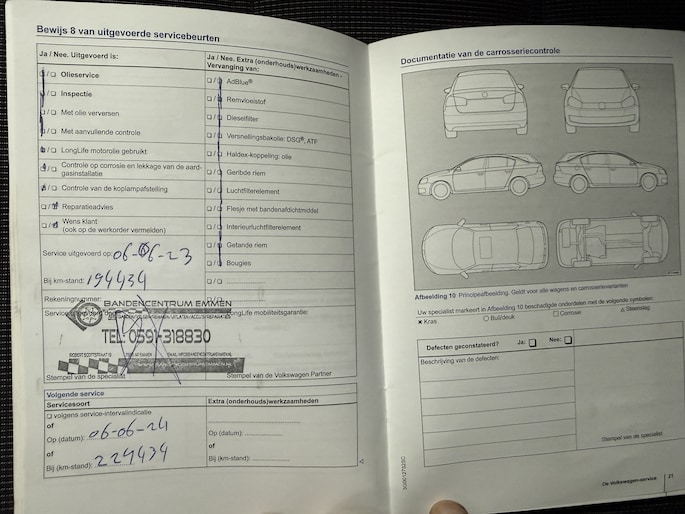 Bewijs 8 van uitgevoerde servicebeurten
Ja / Nee. Uitgevoerd is:
Olieservice
Inspectie
Met olie verversen
Met aanvullende controle
LongLife motorolie gebruikt
Controle op corrosie en lekkage van de aard-
gasinstallatie
Controle van de koplampafstelling
Reparatieadvies
Wens klant:
(ook op de werkorder vermelden)
Service uitgevoerd op: 06-06-23
Bij km-stand: 194434
Rekeningnummer:
Stempel van de specialist
Ja / Nee. Extra (onderhouds)werkzaamheden -
Vervanging van:
AdBlue®
Remvloeistof
Dieselfilter
Versnellingsbakolie: DSG®, ATF
Haldex-koppeling: olie
Geribde riem
Luchtfilterelement
Flesje met bandenafdichtmiddel
Interieurluchtfilterelement
Getande riem
Bougies
LongLife mobiliteitsgarantie:
Stempel van de Volkswagen Partner
BANDENCENTRUM EMMEN
TEL: 0591-318830
Volgende service
Servicesoort
volgens service-intervalindicatie
of
Op (datum): 06-06-24
of
Bij (km-stand): 229434
Extra (onderhouds)werkzaamheden
Op (datum):
of
Bij (km-stand):
Documentatie van de carrosseriecontrole
Afbeelding 10 Principeafbeelding. Geldt voor alle wagens en carrosserievarianten
Uw specialist markeert in Afbeelding 10 beschadigde onderdelen met de volgende symbolen:
× Kras ○ Buil/deuk □ Corrosie △ Steenslag
Defecten geconstateerd? Ja: Nee:
Beschrijving van de defecten:
Stempel van de specialist
De Volkswagen-service 21